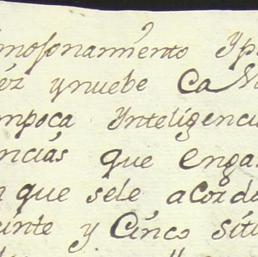 mosonamiento Yp
éz ynuebe Ca
mpoca Ynteligenci
ncias que enga
que sele acorda
inte y Cinco sit